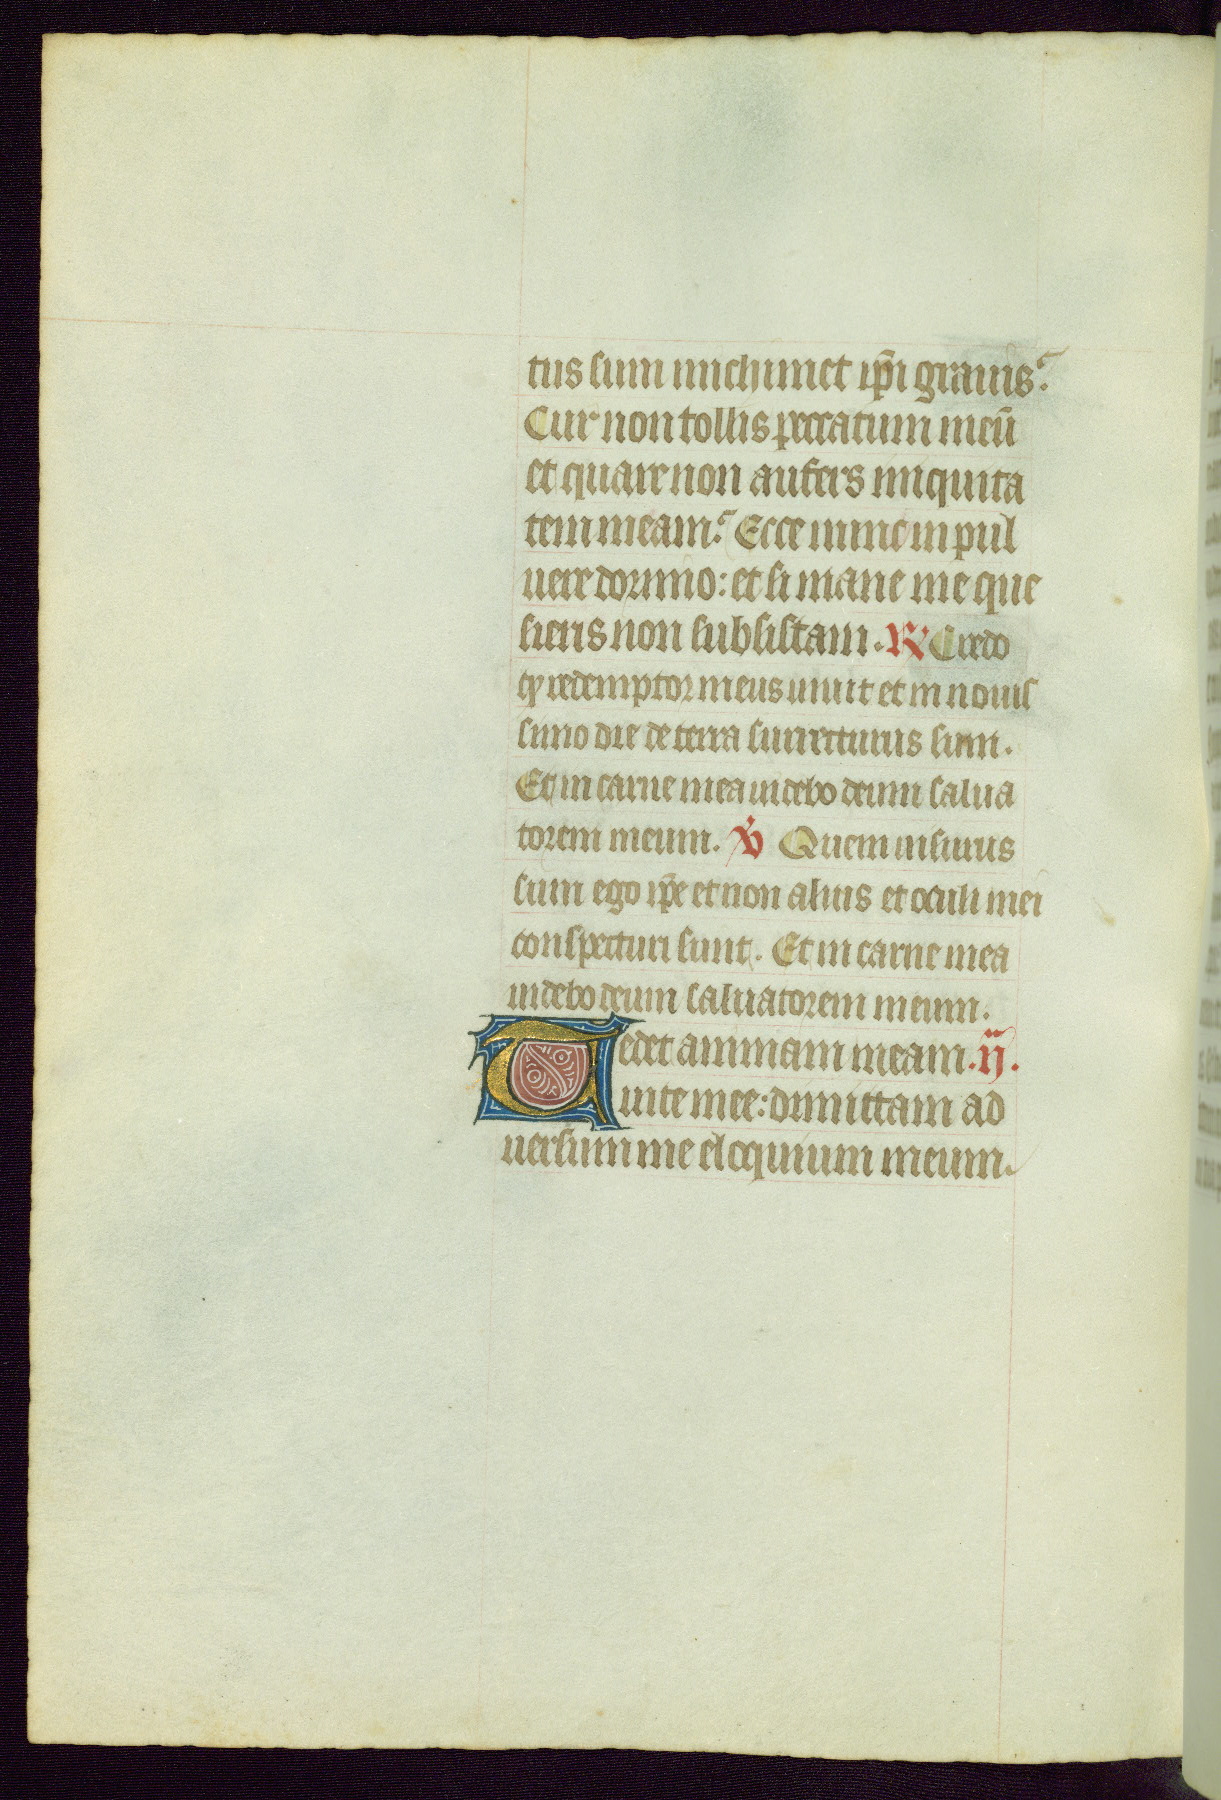 tus sum michimet ip̄i grauis?
Cur non tollis peccatum meū
et quare non aufers iniquita
tem meam? Ecce nunc in pul
uere dormio: et si mane me que
sieris non subsistam. ℟ Credo
qꝫ redemptor meus uiuit et in nouis
simo die de terra surrecturus sum.
Et in carne mea uidebo deum salua
torem meum. ℣ Quem uisurus
sum ego ip̄e et non alius et oculi mei
conspecturi sunt. Et in carne mea
uidebo deum saluatorem meum.
Tedet animam meam .ij.
uite mee: dimittam ad
uersum me eloquium meum.